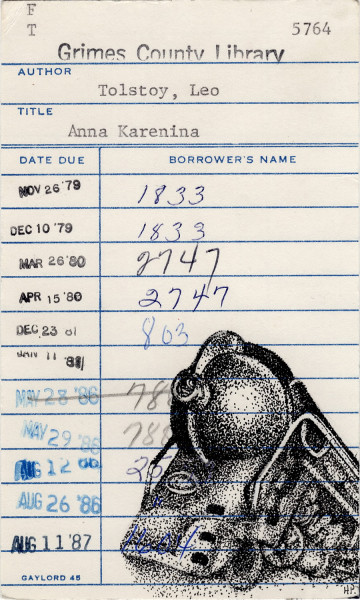 F
T
5764
Grimes County Library
AUTHOR
Tolstoy, Leo
TITLE
Anna Karenina
DATE DUE BORROWER'S NAME
NOV 26 '79 1833
DEC 10 '79 1833
MAR 26 '80 2747
APR 15 '80 2747
DEC 23 81 803
11
MAY 28 '86 78
MAY 29 '86 788
AUG 12 25
AUG 26 '86
AUG 11 '87
GAYLORD 45